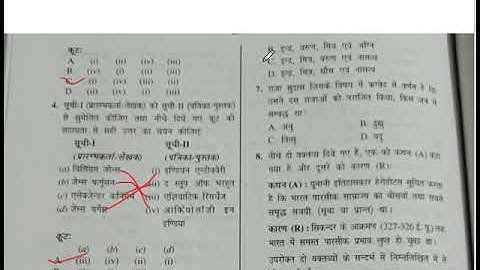 कूट:
A (i) (ii) (iv) (iii)
B (iv) (i) (iii)
C (i) (iv) (ii)
D (ii) (iv) (iii)
4. सूची-I (प्रारम्भकर्ता/लेखक) को सूची-II (पत्रिका/पुस्तक)
से सुमेलित कीजिए तथा नीचे दिए गए कूट की
सहायता से सही उत्तर का चयन कीजिए
सूची-I सूची-II
(प्रारम्भकर्ता/लेखक) (पत्रिका/पुस्तक)
(a) विलियम जोन्स इण्डियन एन्टीक्वेरी
(b) जेम्स फर्गुसन द स्तूप ऑफ भरहुत
(c) एलेक्जेन्डर कनिंघम एशियाटिक रिसर्चेज
(d) जेम्स बर्गेस (iv) आर्कियोलॉजी इन
इण्डिया
कूट:
(a) (b) (c) (d)
A (iii) (iv) (ii) (i)
B. इन्द्र, वरुण, मित्र एवं अग्नि
C. इन्द्र, मित्र, वरुण एवं नासत्य
D. इन्द्र, मित्र, द्यौस एवं नासत्य
7. राजा सुदास जिसके विषय में ऋग्वेद में वर्णन है कि
उसने दस राजाओं को पराजित किया, किस जन से
सम्बद्ध था?
A. अनु B. द्रुह्यु
C. त्रित्सु D. यदु
8. नीचे दो वक्तव्य दिए गए हैं, एक को कथन (A) कहा
गया है और दूसरे को कारण (R):
कथन (A) : यूनानी इतिहासकार हेरोडोटस सूचित करता है
कि भारत पारसीक साम्राज्य का बीसवाँ तथा सबसे
समृद्ध सत्रपी (सूबा या प्रान्त) था।
कारण (R) : सिकन्दर के आक्रमण (327-326 ई. पू.) तक
भारत में समस्त पारसीक प्रभाव लुप्त हो चुका था।
उपरोक्त दो वक्तव्यों के सन्दर्भ में निम्नलिखित में से